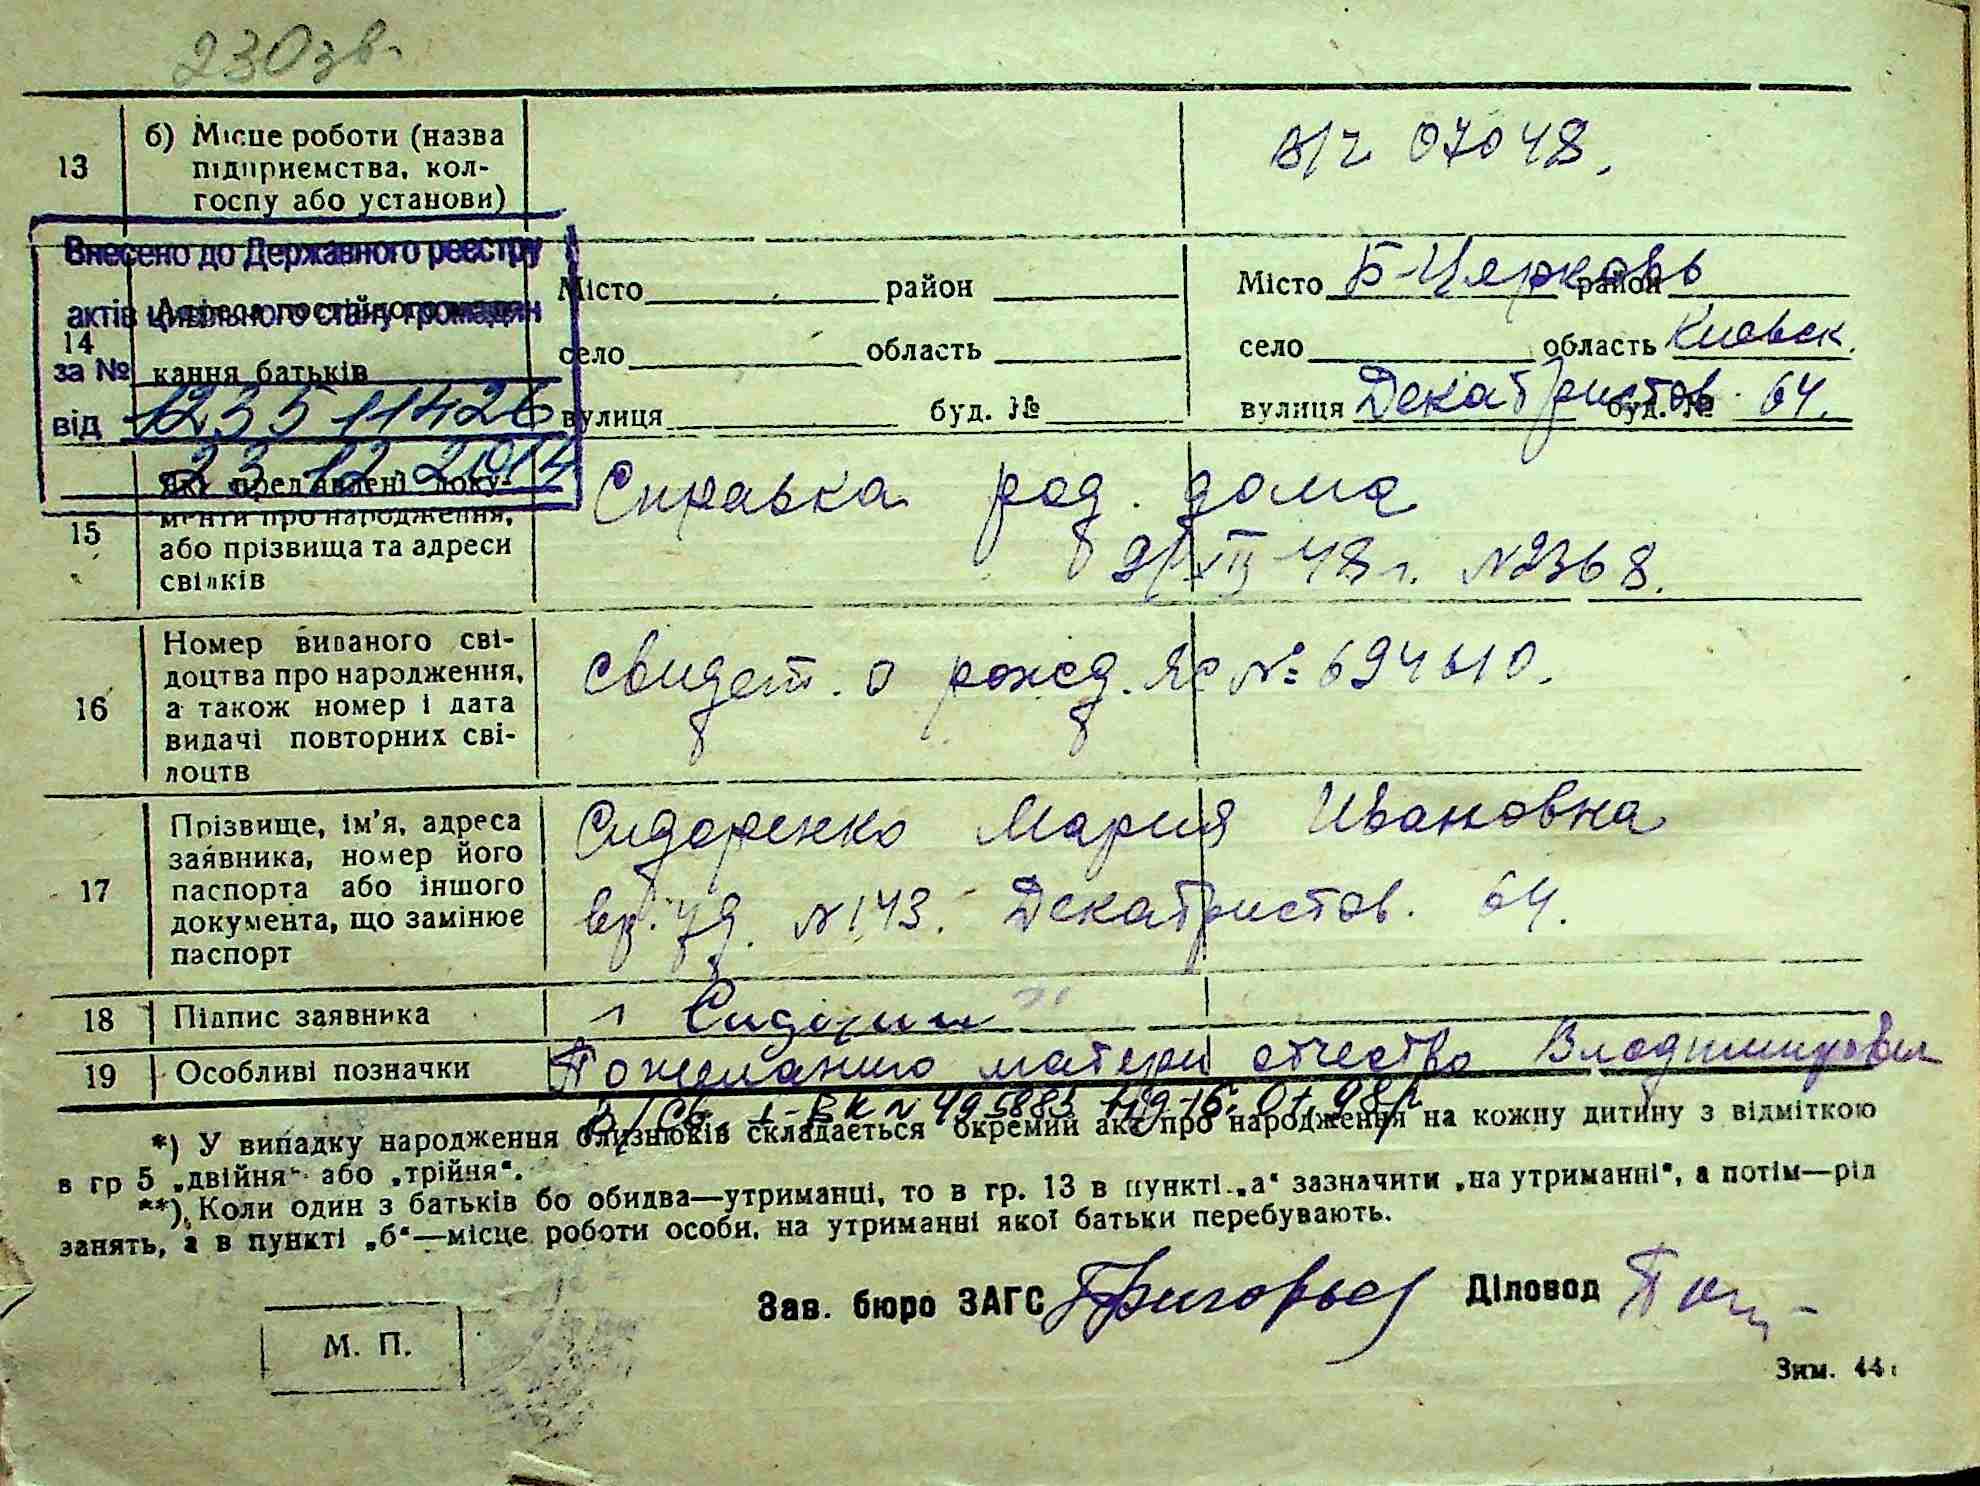 230 зв.
13
б) Місце роботи (назва
підприємства, кол-
госпу або установи)
в/ч 07048.
Внесено до Державного реєстру
актів цивільного стану громадян
за №
від 12351 1426
23 12 2014
14
кання батьків
Місто район
село область
вулиця буд. №
Місто Б-Церковь район
село область Киевск.
вулиця Декабристов буд. № 64.
15
які пред'явлені доку-
менти про народження,
або прізвища та адреси
свідків
Справка род. дома
XII 48 г. №2368.
16
Номер виданого сві-
доцтва про народження,
а також номер і дата
видачі повторних сві-
доцтв
свидет. о рожд. ЯС № 694610.
17
Прізвище, ім'я, адреса
заявника, номер його
паспорта або іншого
документа, що замінює
паспорт
Сидоренко Мария Ивановна
вр. уд. №143. Декабристов. 64.
18
Підпис заявника
19
Особливі позначки
По желанию матери отчество Владимировна
*) У випадку народження близнюків складається окремий акт про народження на кожну дитину з відміткою
в гр 5 „двійня“ або „трійня“.
**) Коли один з батьків бо обидва—утриманці, то в гр. 13 в пункті „а“ зазначити „на утриманні“, а потім—рід
занять, а в пункті „б“—місце роботи особи, на утриманні якої батьки перебувають.
Зав. бюро ЗАГС Григорьев Діловод
М. П.
Зим. 44